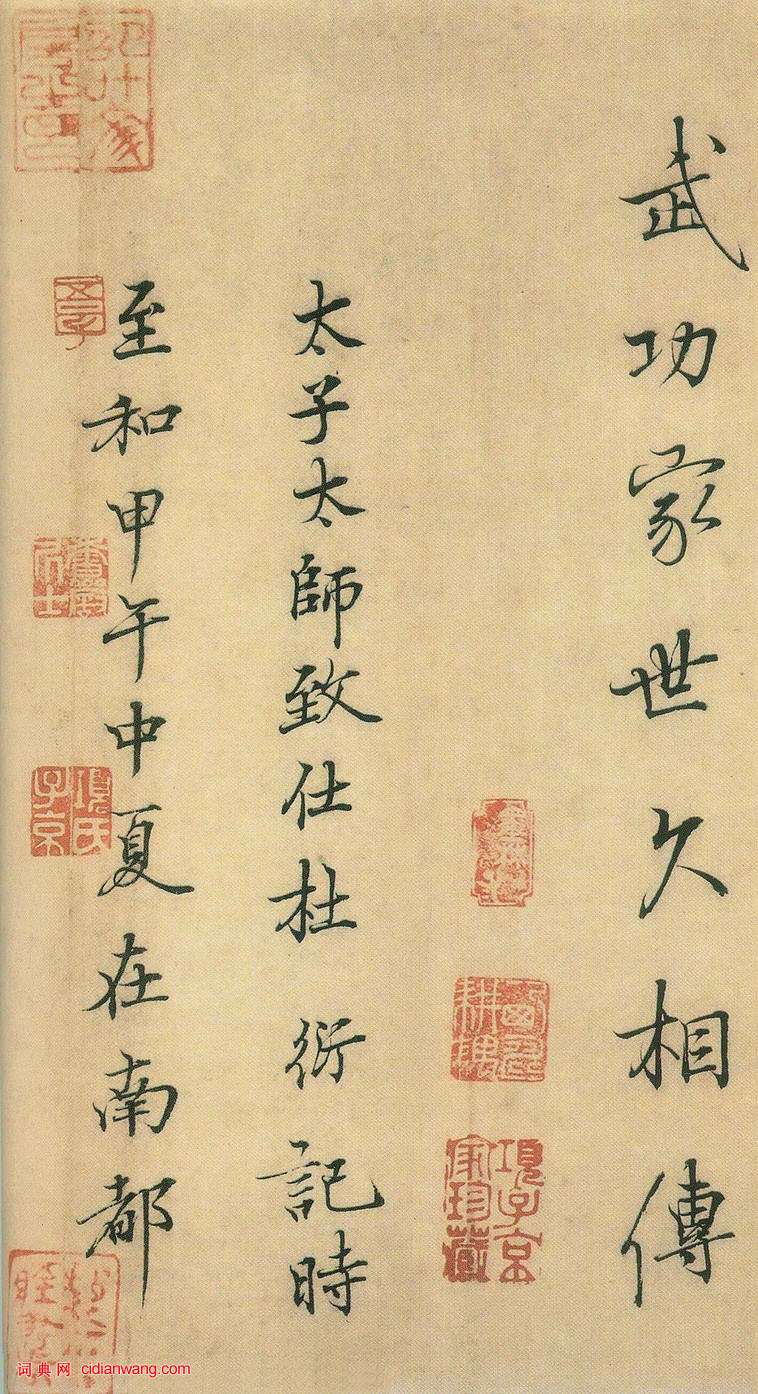 武功家世久相傳
太子太師致仕杜衍記時
至和甲午中夏在南都
項子京家珍藏
項氏子京
词典网 cidianwang.com